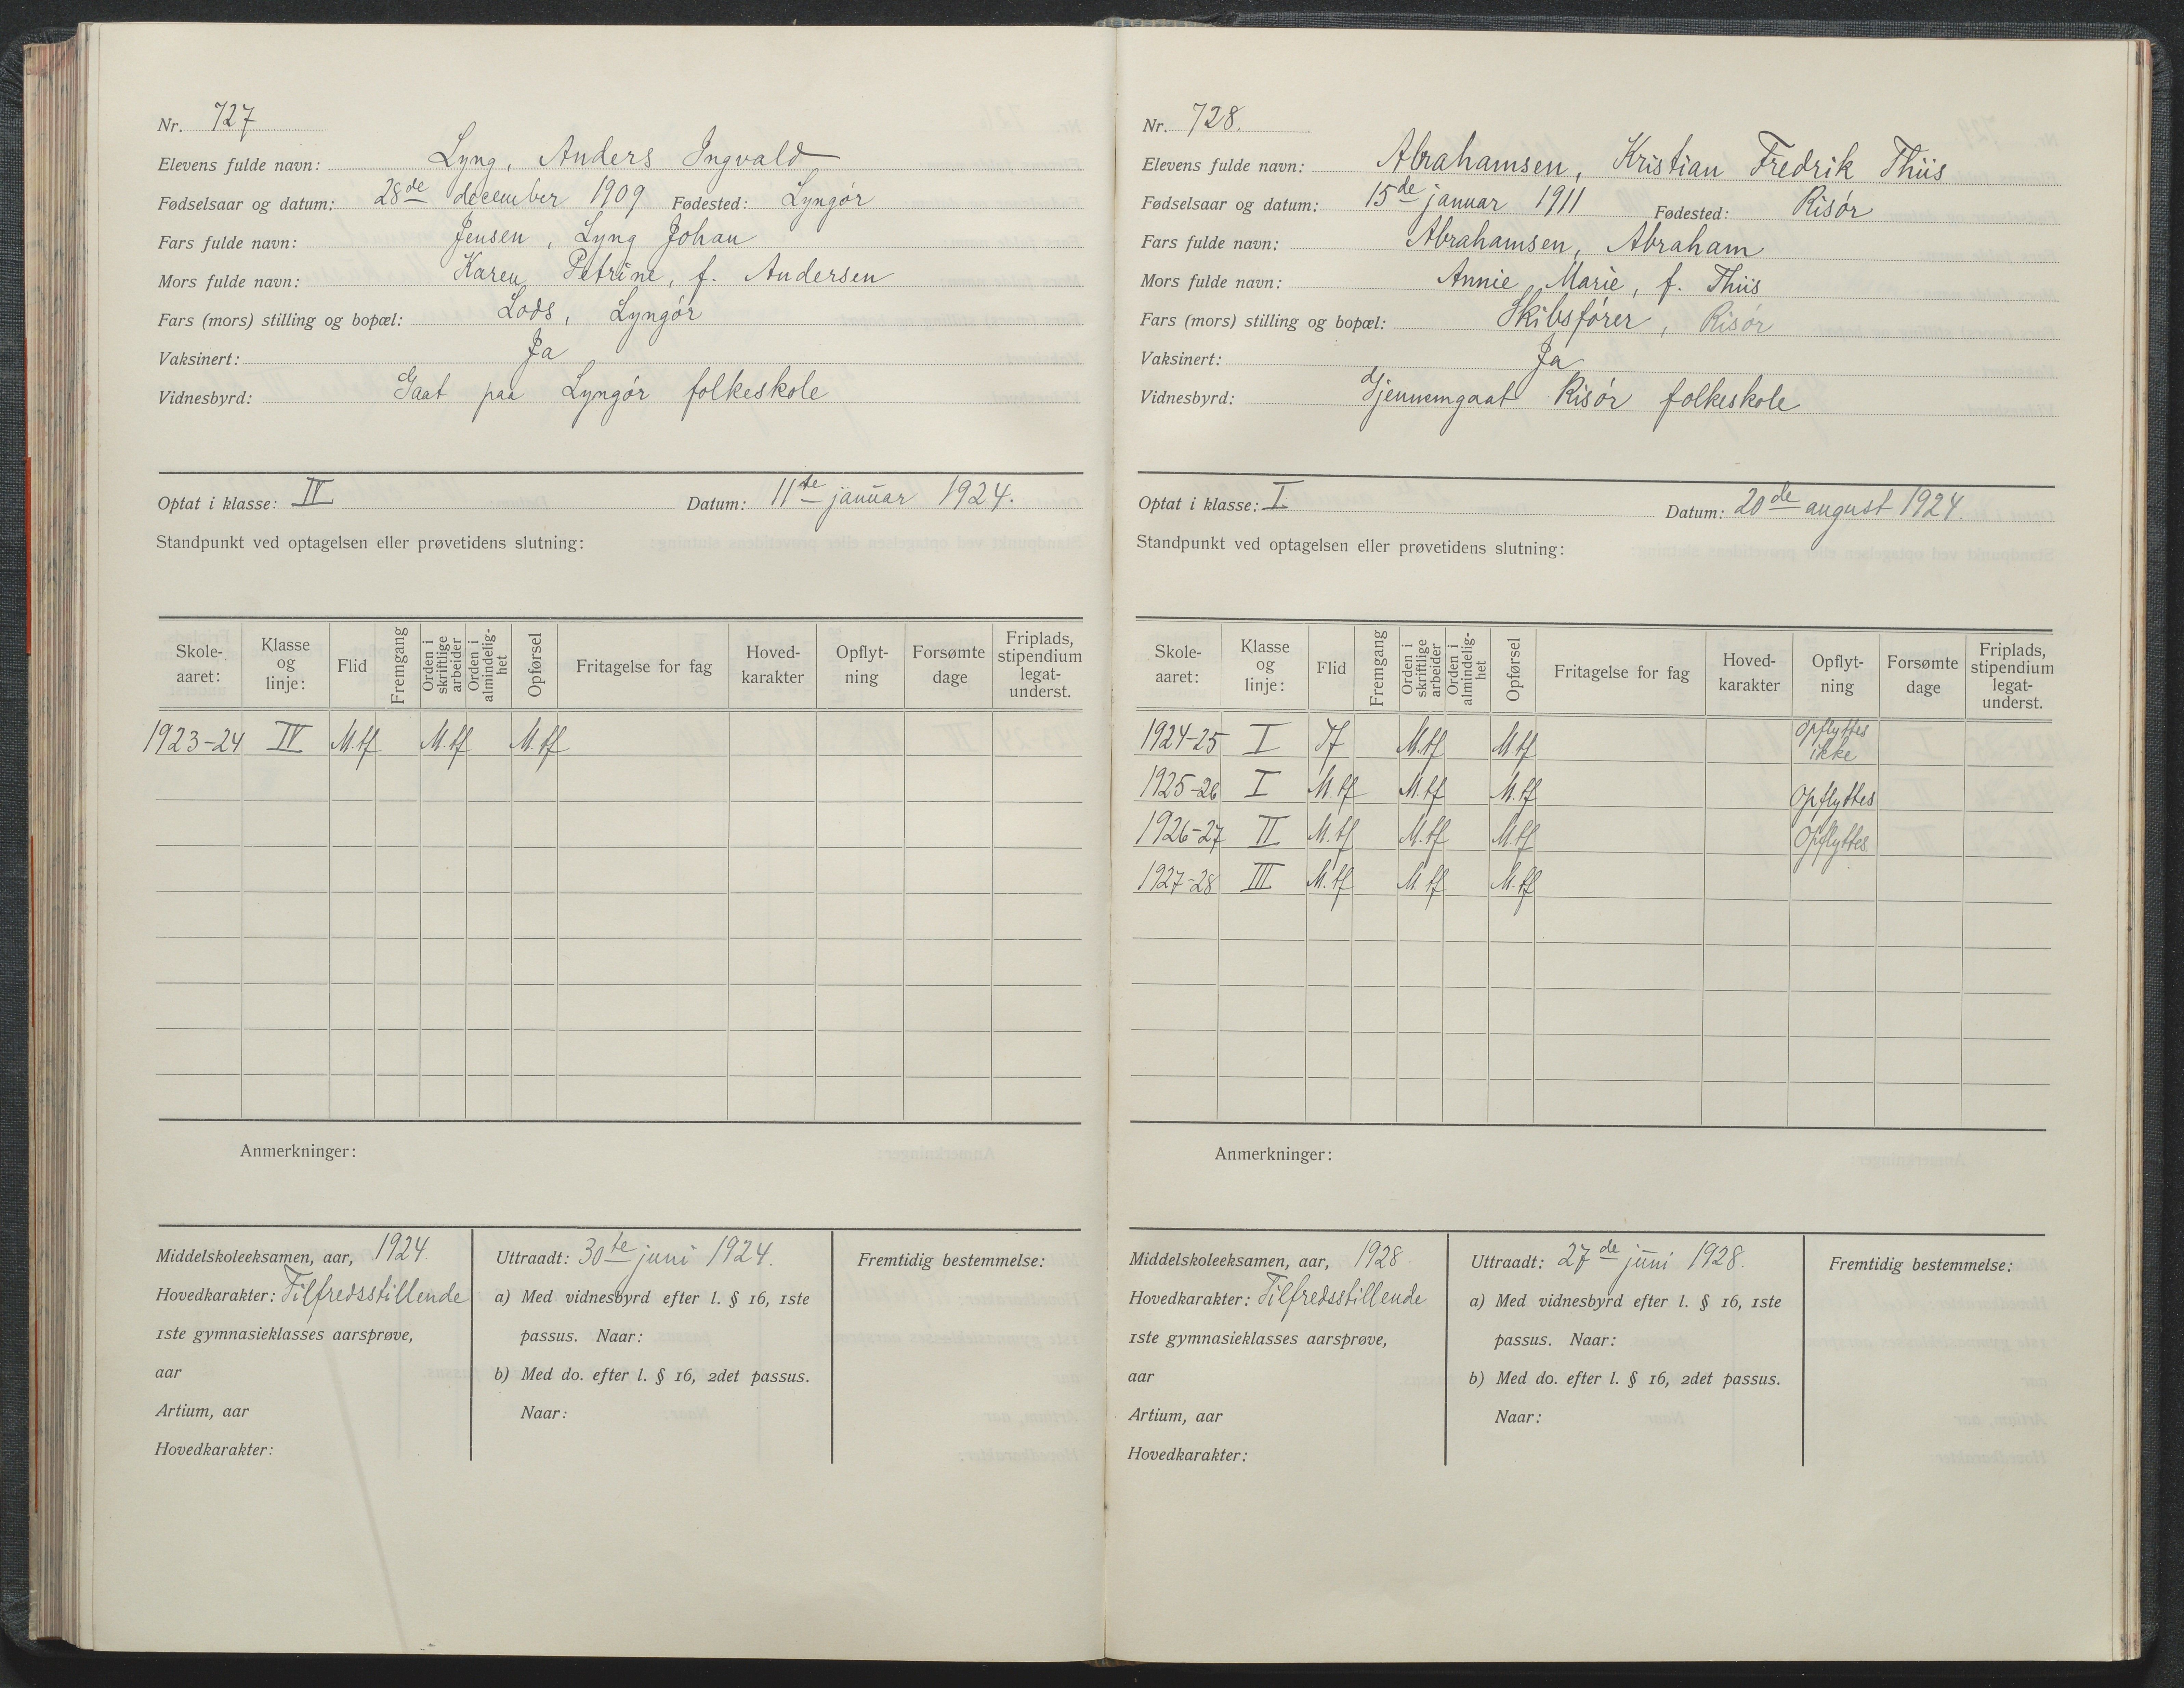 Nr. 727
Elevens fulde navn: Lyng, Anders Ingvald
Fødselsaar og datum: 28de december 1909 Fødested: Lyngør
Fars fulde navn: Jensen, Lyng Johan
Mors fulde navn: Karen Petrine, f. Andersen
Fars (mors) stilling og bopæl: Lods, Lyngør
Vaksinert: Ja
Vidnesbyrd: Gaat paa Lyngør folkeskole
Optat i klasse: IV Datum: 11te januar 1924.
Standpunkt ved optagelsen eller prøvetidens slutning:
Skole-aaret: Klasse og linje: Flid Fremgang Orden i skriftlige arbeider Orden i almindelig-het Opførsel Fritagelse for fag Hoved-karakter Opflyt-ning Forsømte dage Friplads, stipendium legat-underst.
1923-24 IV M.tf M.tf M.tf
Anmerkninger:
Middelskoleeksamen, aar, 1924.
Hovedkarakter: Tilfredsstillende
1ste gymnasieklasses aarsprøve,
aar
Artium, aar
Hovedkarakter:
Uttraadt: 30te juni 1924.
a) Med vidnesbyrd efter l. § 16, 1ste
passus. Naar:
b) Med do. efter l. § 16, 2det passus.
Naar:
Fremtidig bestemmelse:
Nr. 728.
Elevens fulde navn: Abrahamsen, Kristian Fredrik Thiis
Fødselsaar og datum: 15de januar 1911 Fødested: Risør
Fars fulde navn: Abrahamsen, Abraham
Mors fulde navn: Annie Marie, f. Thiis
Fars (mors) stilling og bopæl: Skibsfører, Risør
Vaksinert: Ja
Vidnesbyrd: Gjennemgaat Risør folkeskole
Optat i klasse: I Datum: 20de august 1924.
Standpunkt ved optagelsen eller prøvetidens slutning:
Skole-aaret: Klasse og linje: Flid Fremgang Orden i skriftlige arbeider Orden i almindelig-het Opførsel Fritagelse for fag Hoved-karakter Opflyt-ning Forsømte dage Friplads, stipendium legat-underst.
1924-25 I Tf M.tf M.tf Opflyttes ikke
1925-26 I M.tf M.tf M.tf Opflyttes
1926-27 II M.tf M.tf M.tf Opflyttes
1927-28 III M.tf M.tf M.tf
Anmerkninger:
Middelskoleeksamen, aar, 1928.
Hovedkarakter: Tilfredsstillende
1ste gymnasieklasses aarsprøve,
aar
Artium, aar
Hovedkarakter:
Uttraadt: 27de juni 1928.
a) Med vidnesbyrd efter l. § 16, 1ste
passus. Naar:
b) Med do. efter l. § 16, 2det passus.
Naar:
Fremtidig bestemmelse: